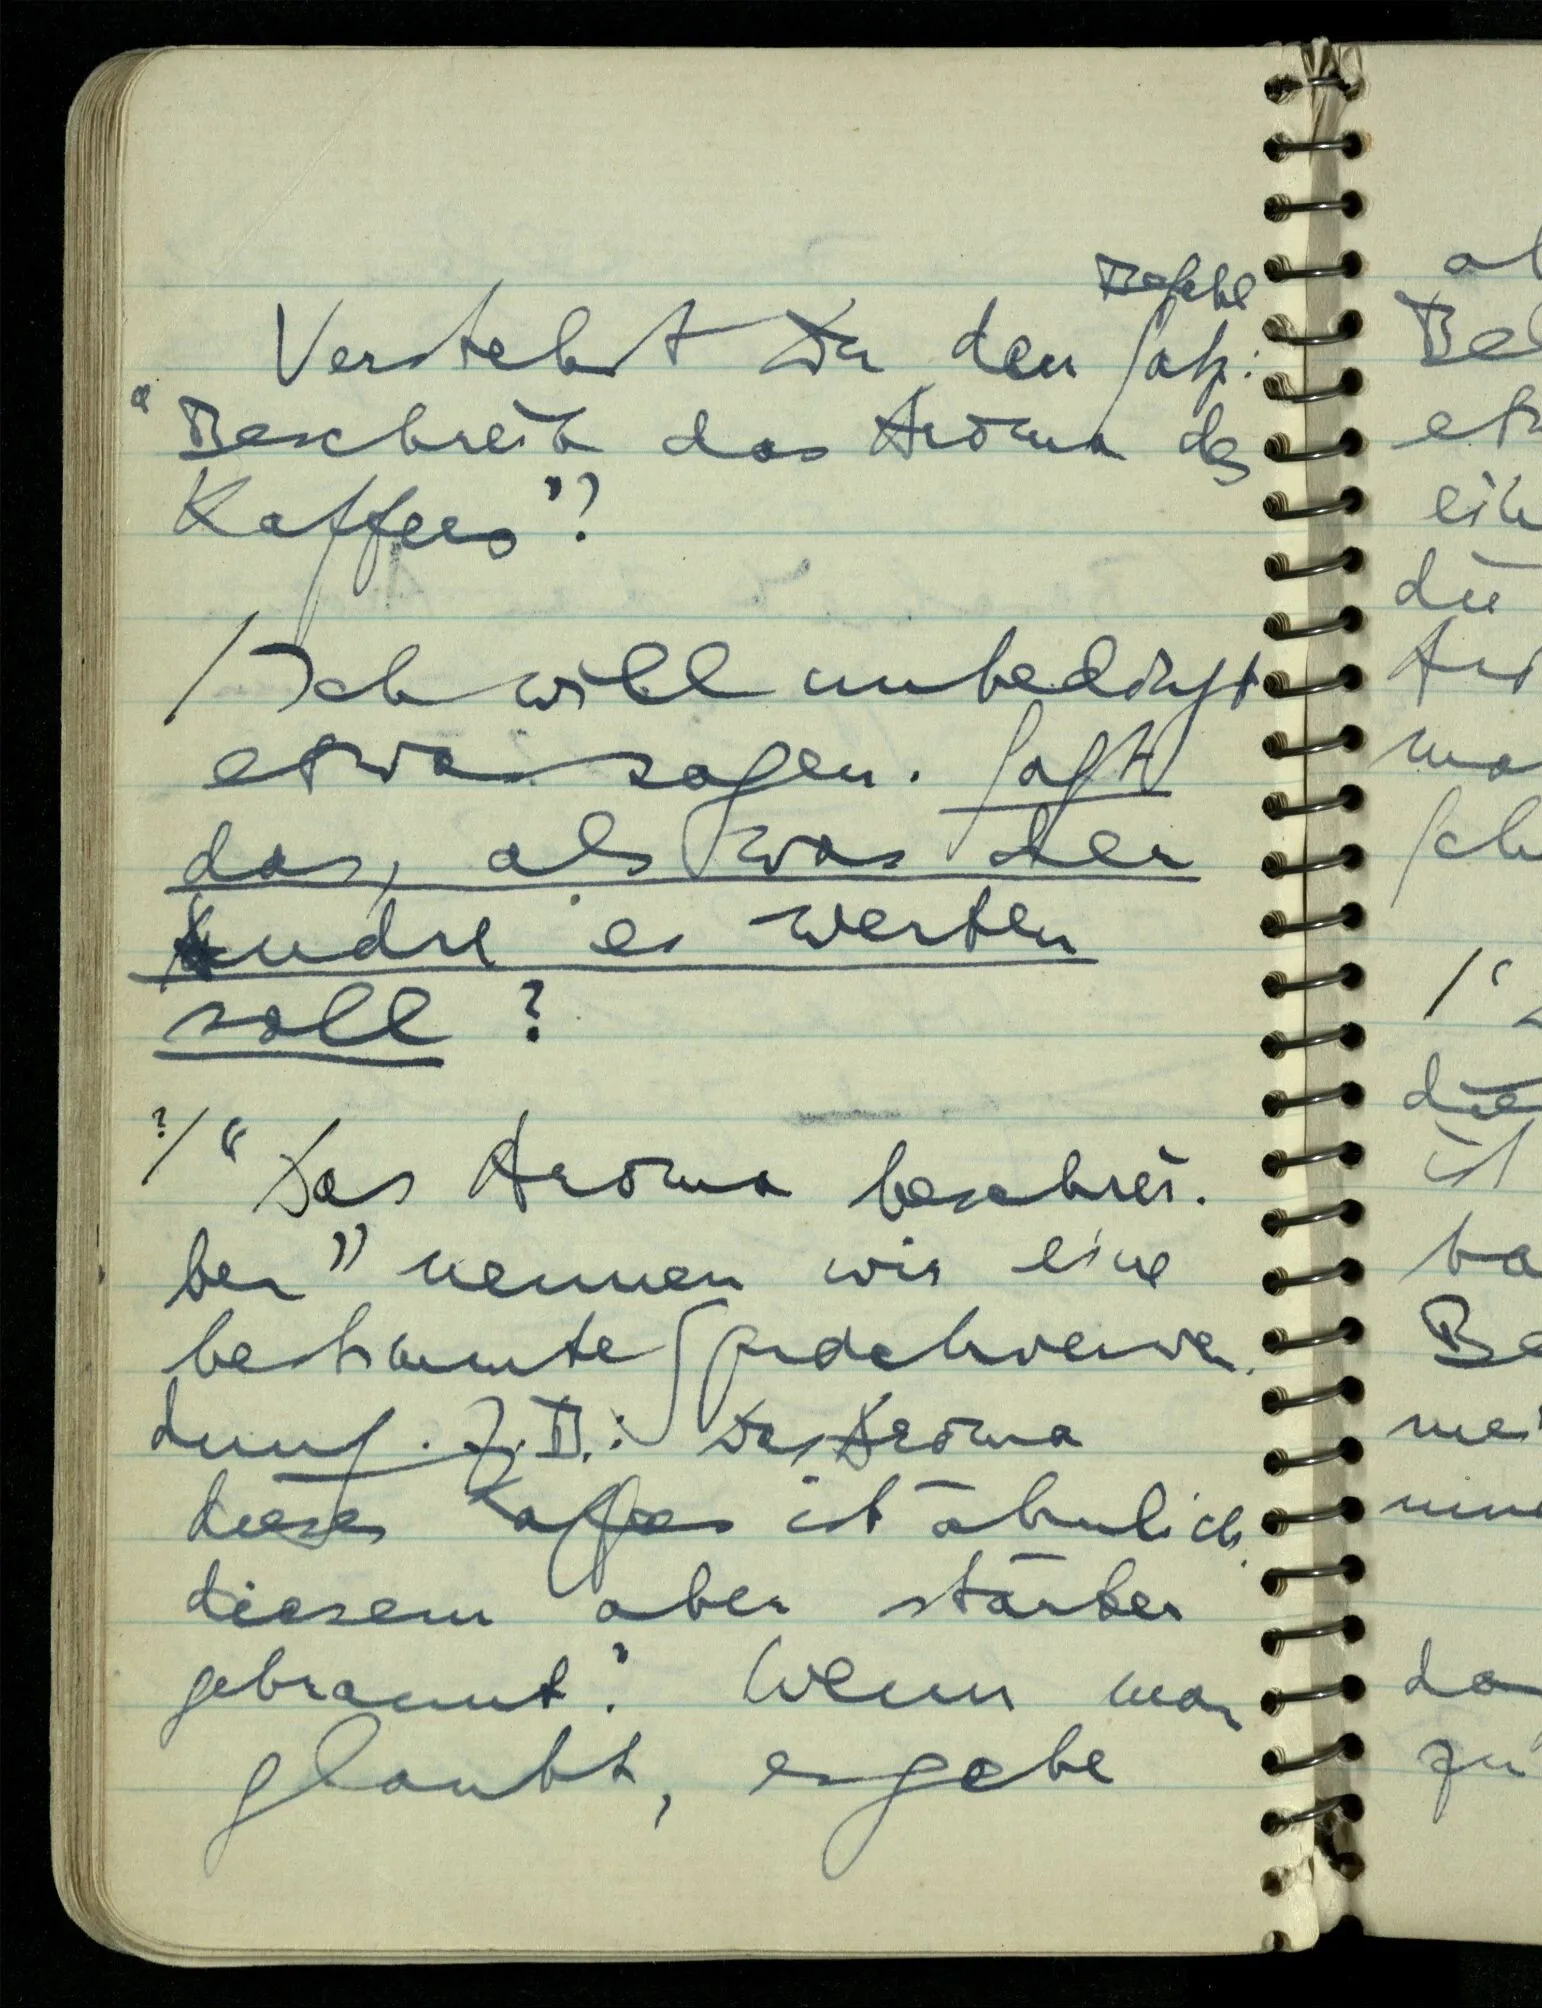 Befehl
Verstehst Du den Satz:
"Beschreib das Aroma des
Kaffees"?
/ Ich will unbedingt
etwas sagen. Sagt
das, als was der
Andre es werten
soll?
?/ "Das Aroma beschrei-
ben" nennen wir eine
bestimmte Sprachverwen-
dung. Z.B.: Das Aroma
dieses Kaffees ist ähnlich
diesem aber stärker
gebrannt." Wenn man
glaubt, es gebe
die
ist